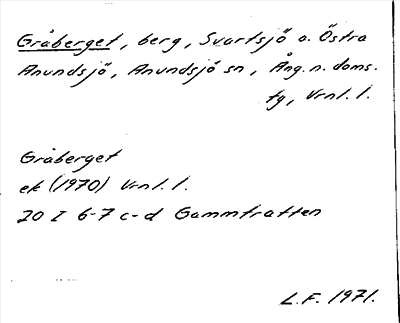 Gråberget, berg, Svartsjö o. Östra
Anundsjö, Anundsjö sn, Ång. n. doms.
fg, Vrnl. l.
Gråberget
ek (1970) Vrnl. l.
20 I 6-7 c-d Gammtratten
L.F. 1971.